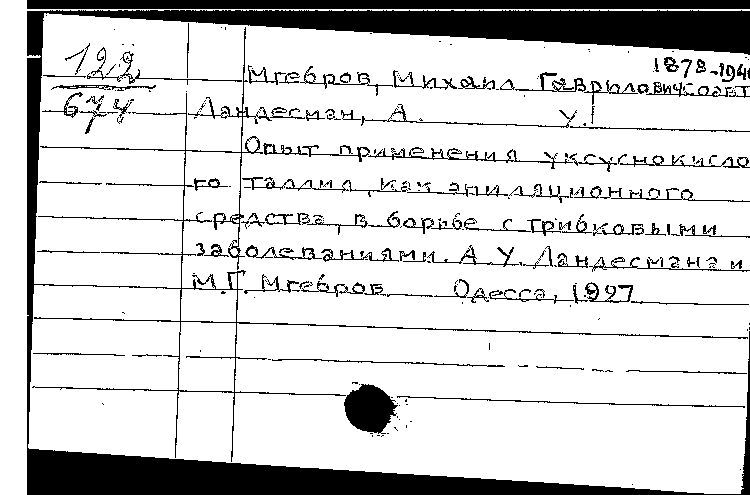 122
674
1878-194
Мгебров, Михаил Гаврилович соавт
Ландесман, А. У.
Опыт применения уксуснокисло
го таллия, как эпиляционного
средства, в борьбе с грибковыми
заболеваниями. А. У. Ландесмана и
М.Г. Мгебров. Одесса, 1927.